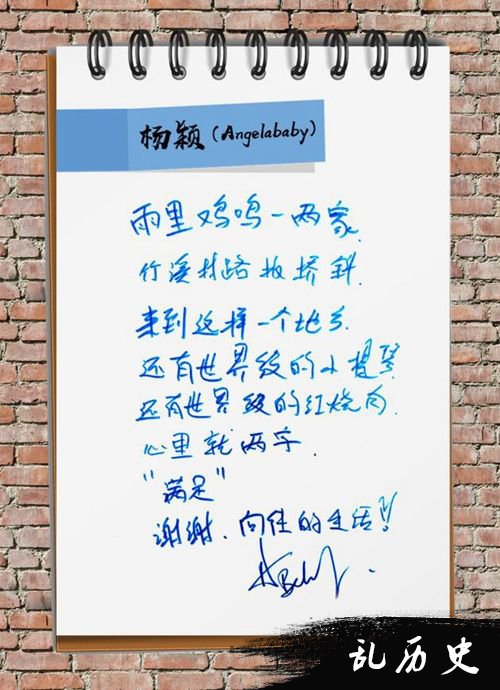 杨颖(Angelababy)
雨里鸡鸣一两家
竹溪村路板桥斜
来到这样一个地方
还有世界级的小提琴
还有世界级的红烧肉.
心里就两字.
"满足"
谢谢.向往的生活!!
乱历史